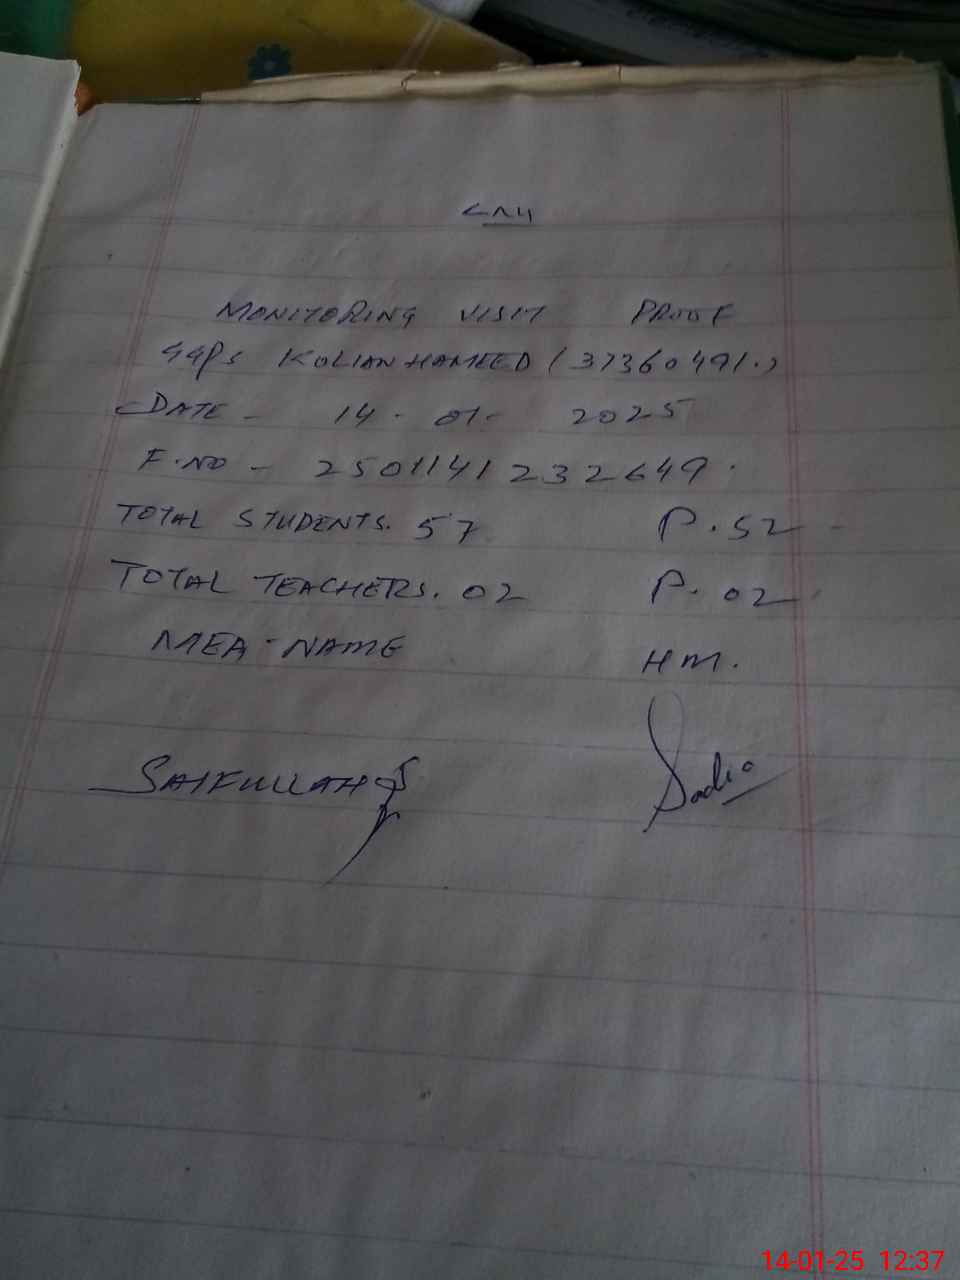 MONITORING VISIT PROOF
GGPS KOLIAN HAMEED (37360491.)
DATE - 14 - 01 - 2025
F.NO - 2501141232649.
TOTAL STUDENTS. 57 P. 52 -
TOTAL TEACHERS. 02 P. 02
MEA - NAME HM.
SAIFULLAH Sadia
14-01-25 12:37